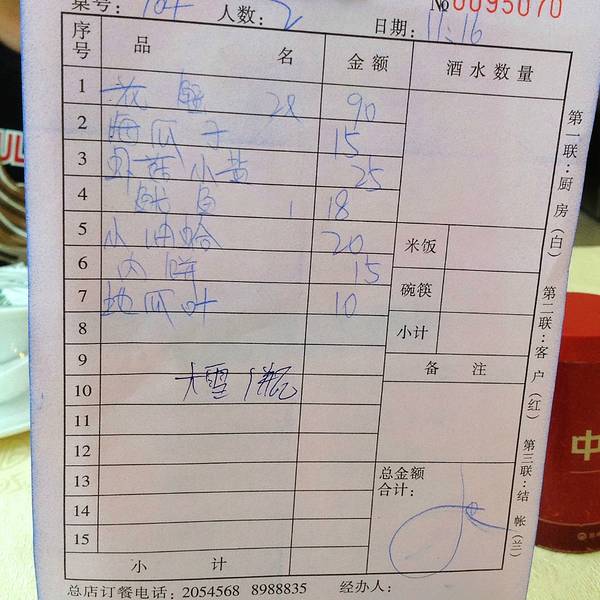 桌号： 人数：2 №0095070
日期：11.16
序号 品名 金额 酒水数量
1 90
2 海瓜子 15
3 虾菇小黄 25
4 鱼 1 18
5 小油蛤 20
6 肉饼 15
7 地瓜叶 10
8
9
10 大雪1瓶
11
12
13
14
15
小计
米饭
碗筷
小计
备注
总金额
合计：
第一联：厨房（白）
第二联：客户（红）
第三联：结帐（兰）
总店订餐电话：2054568 8988835 经办人：
中